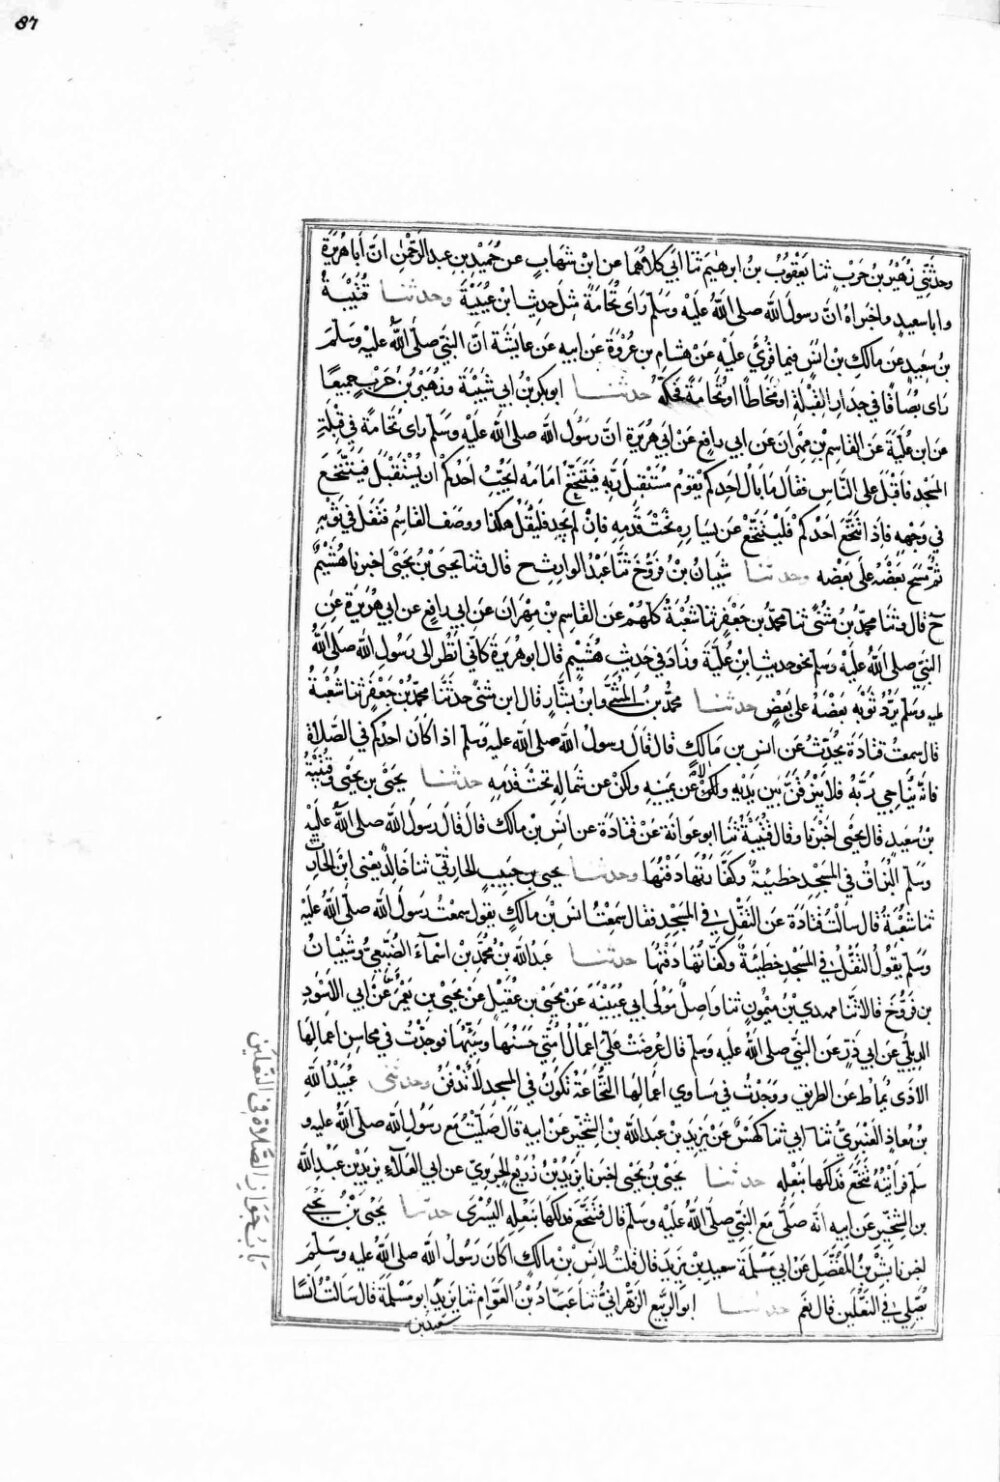 87
وحدثني زهير بن حرب ثنا يعقوب بن ابرهيم ثنا ابي كلاهما عن ابن شهاب عن حميد بن عبد الرحمن ان ابا هريرة
وابا سعيد اخبراه ان رسول الله صلى الله عليه وسلم راى نخامة مثل حديث ابن عيينة وحدثنا قتيبة
بن سعيد عن مالك بن انس فيما قرئ عليه عن هشام بن عروة عن ابيه عن عايشة ان النبي صلى الله عليه وسلم
راى بصاقا في جدار القبلة او مخاطا او نخامة فحكه حدثنا ابو بكر بن ابي شيبة وزهير بن حرب جميعا
عن ابن علية عن القاسم بن مهران عن ابي رافع عن ابي هريرة ان رسول الله صلى الله عليه وسلم راى نخامة في قبلة
المسجد فاقبل على الناس فقال ما بال احدكم يقوم مستقبل ربه فيتنخع امامه ايحب احدكم ان يستقبل فيتنخع
في وجهه فاذا تنخع احدكم فليتنخع عن يساره تحت قدمه فان لم يجد فليقل هكذا ووصف القاسم فتفل في ثوبه
ثم مسح بعضه على بعضه وحدثنا شيبان بن فروخ ثنا عبد الوارث ح قال وثنا يحيى بن يحيى اخبرنا هشيم
ح قال وثنا محمد بن مثنى ثنا محمد بن جعفر ثنا شعبة كلهم عن القاسم بن مهران عن ابي رافع عن ابي هريرة عن
النبي صلى الله عليه وسلم نحو حديث ابن علية وزاد في حديث هشيم قال ابو هريرة كاني انظر الى رسول الله صلى الله
عليه وسلم يرد ثوبه بعضه على بعض حدثنا محمد بن المثنى وابن بشار قال ابن مثنى حدثنا محمد بن جعفر ثنا شعبة
قال سمعت قتادة يحدث عن انس بن مالك قال قال رسول الله صلى الله عليه وسلم اذا كان احدكم في الصلاة
فانه يناجي ربه فلا يبزقن بين يديه ولا عن يمينه ولكن عن شماله تحت قدمه حدثنا يحيى بن يحيى وقتيبة
بن سعيد قال يحيى اخبرنا وقال قتيبة ثنا ابو عوانة عن قتادة عن انس بن مالك قال قال رسول الله صلى الله عليه
وسلم البزاق في المسجد خطيئة وكفارتها دفنها وحدثنا يحيى بن حبيب الحارثي ثنا خالد يعنى ابن الحارث
ثنا شعبة قال سالت قتادة عن التفل في المسجد فقال سمعت انس بن مالك يقول سمعت رسول الله صلى الله عليه
وسلم يقول التفل في المسجد خطيئة وكفارتها دفنها حدثنا عبد الله بن محمد بن اسماء الضبعي وشيبان
بن فروخ قالا ثنا مهدي بن ميمون ثنا واصل مولى ابي عيينة عن يحيى بن عقيل عن يحيى بن يعمر عن ابي الاسود
الديلي عن ابي ذر عن النبي صلى الله عليه وسلم قال عرضت علي اعمال امتي حسنها وسيئها فوجدت في محاسن اعمالها
الاذى يماط عن الطريق ووجدت في مساوي اعمالها النخاعة تكون في المسجد لا تدفن وحدثني عبيد الله
بن معاذ العنبري ثنا ابي ثنا كهمس عن يزيد بن عبد الله بن الشخير عن ابيه قال صليت مع رسول الله صلى الله عليه و
سلم فرايته تنخع فدلكها بنعله حدثنا يحيى بن يحيى اخبرنا يزيد بن زريع الجريري عن ابي العلاء يزيد بن عبد الله
بن الشخير عن ابيه انه صلى مع النبي صلى الله عليه وسلم قال فتنخع فدلكها بنعله اليسرى حدثنا يحيى بن يحيى
اخبرنا بشر بن المفضل عن ابي مسلمة سعيد بن يزيد قال قلت لانس بن مالك اكان رسول الله صلى الله عليه وسلم
يصلي في النعلين قال نعم حدثنا ابو الربيع الزهراني ثنا عباد بن العوام ثنا يزيد ابو مسلمة قال سالت انسا
سعيد بن
باب جواز الصلاة في النعلين